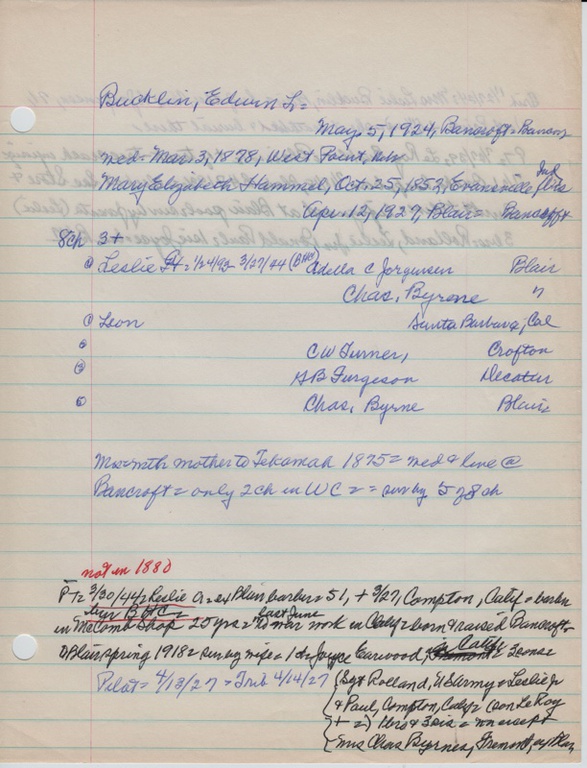 Bucklin, Edwin L =
May 5, 1924, Bancroft = Bancroft
med = Mar. 3, 1878, West Point, Neb
Mary Elizabeth Hammel, Oct. 25, 1852, Evansville, Ind
Apr. 12, 1927, Blair = Bancroft
8ch 3+
Leslie = 1/24/93 - 3/27/44 (BHC) Adella C Jorgensen Blair
Chas. Byrne "
Leon Santa Barbara, Cal
CW Turner, Crofton
HB Furgeson Decatur
Chas, Byrne Blair
Mrs = mother to Tekamah 1875 = med & live @
Bancroft = only 2ch in WC = = sur by 5 of 8 ch
not in 1880
PT = 3/30/44, Leslie = ex Blair barber = 51, + 3/27, Compton, Calif = barber
in McComb Shop 25 yrs = last June war work in Calif = born & raised Bancroft =
Blair, spring 1918 = sur by wife = 1 dr Joyce Earwood, Calif = 3 sons =
Pilot = 4/13/27 = Trib 4/14/27
(Sgt Rolland, US Army = Leslie Jr
& Paul, Compton, Calif = (son LeRoy
+ =) 1 bro & 3 sis =
Mrs Chas Byrnes, Fremont, ex Blair